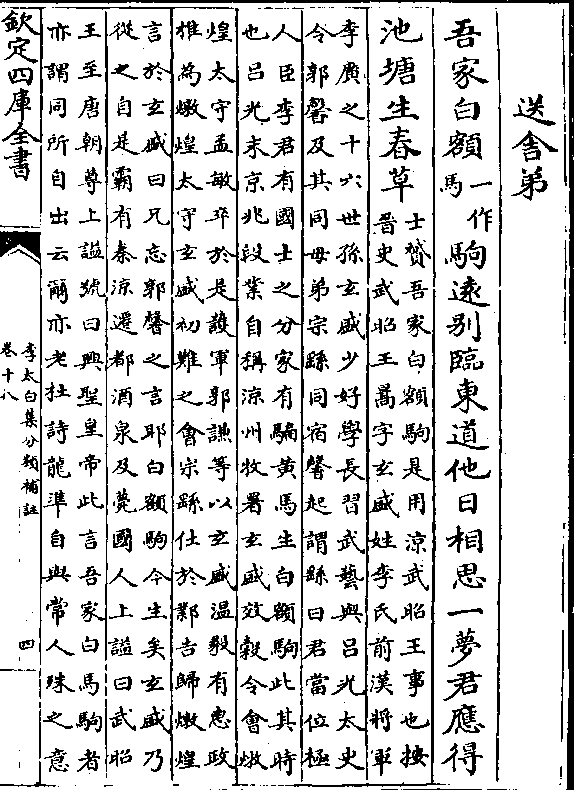 送舍弟
吾家白額一作馬駒遠别臨東道他日相思一夢君應得
池塘生春草
士贇吾家白額駒是用涼武昭王事也按
晉史武昭王暠字玄盛姓李氏前漢將軍
李廣之十六世孫玄盛少好學長習武藝與吕光太史
令郭馨及其同母弟宗繇同宿馨起謂繇曰君當位極
人臣李君有國士之分家有騧黄馬生白額駒此其時
也吕光末京兆段業自稱涼州牧署玄盛效榖令會燉
煌太守孟敏卒於是護軍郭謙等以玄盛温毅有惠政
推為燉煌太守玄盛初難之會宗繇仕於鄴告歸燉煌
言於玄盛曰兄忘郭馨之言耶白額駒今生矣玄盛乃
從之自是霸有秦涼遷都酒泉及薨國人上諡曰武昭
王至唐朝尊上諡號曰興聖皇帝此言吾家白馬駒者
亦謂同所自出云爾亦老杜詩龍準自與常人殊之意
欽定四庫全書
李太白集分類補註
卷十八
四